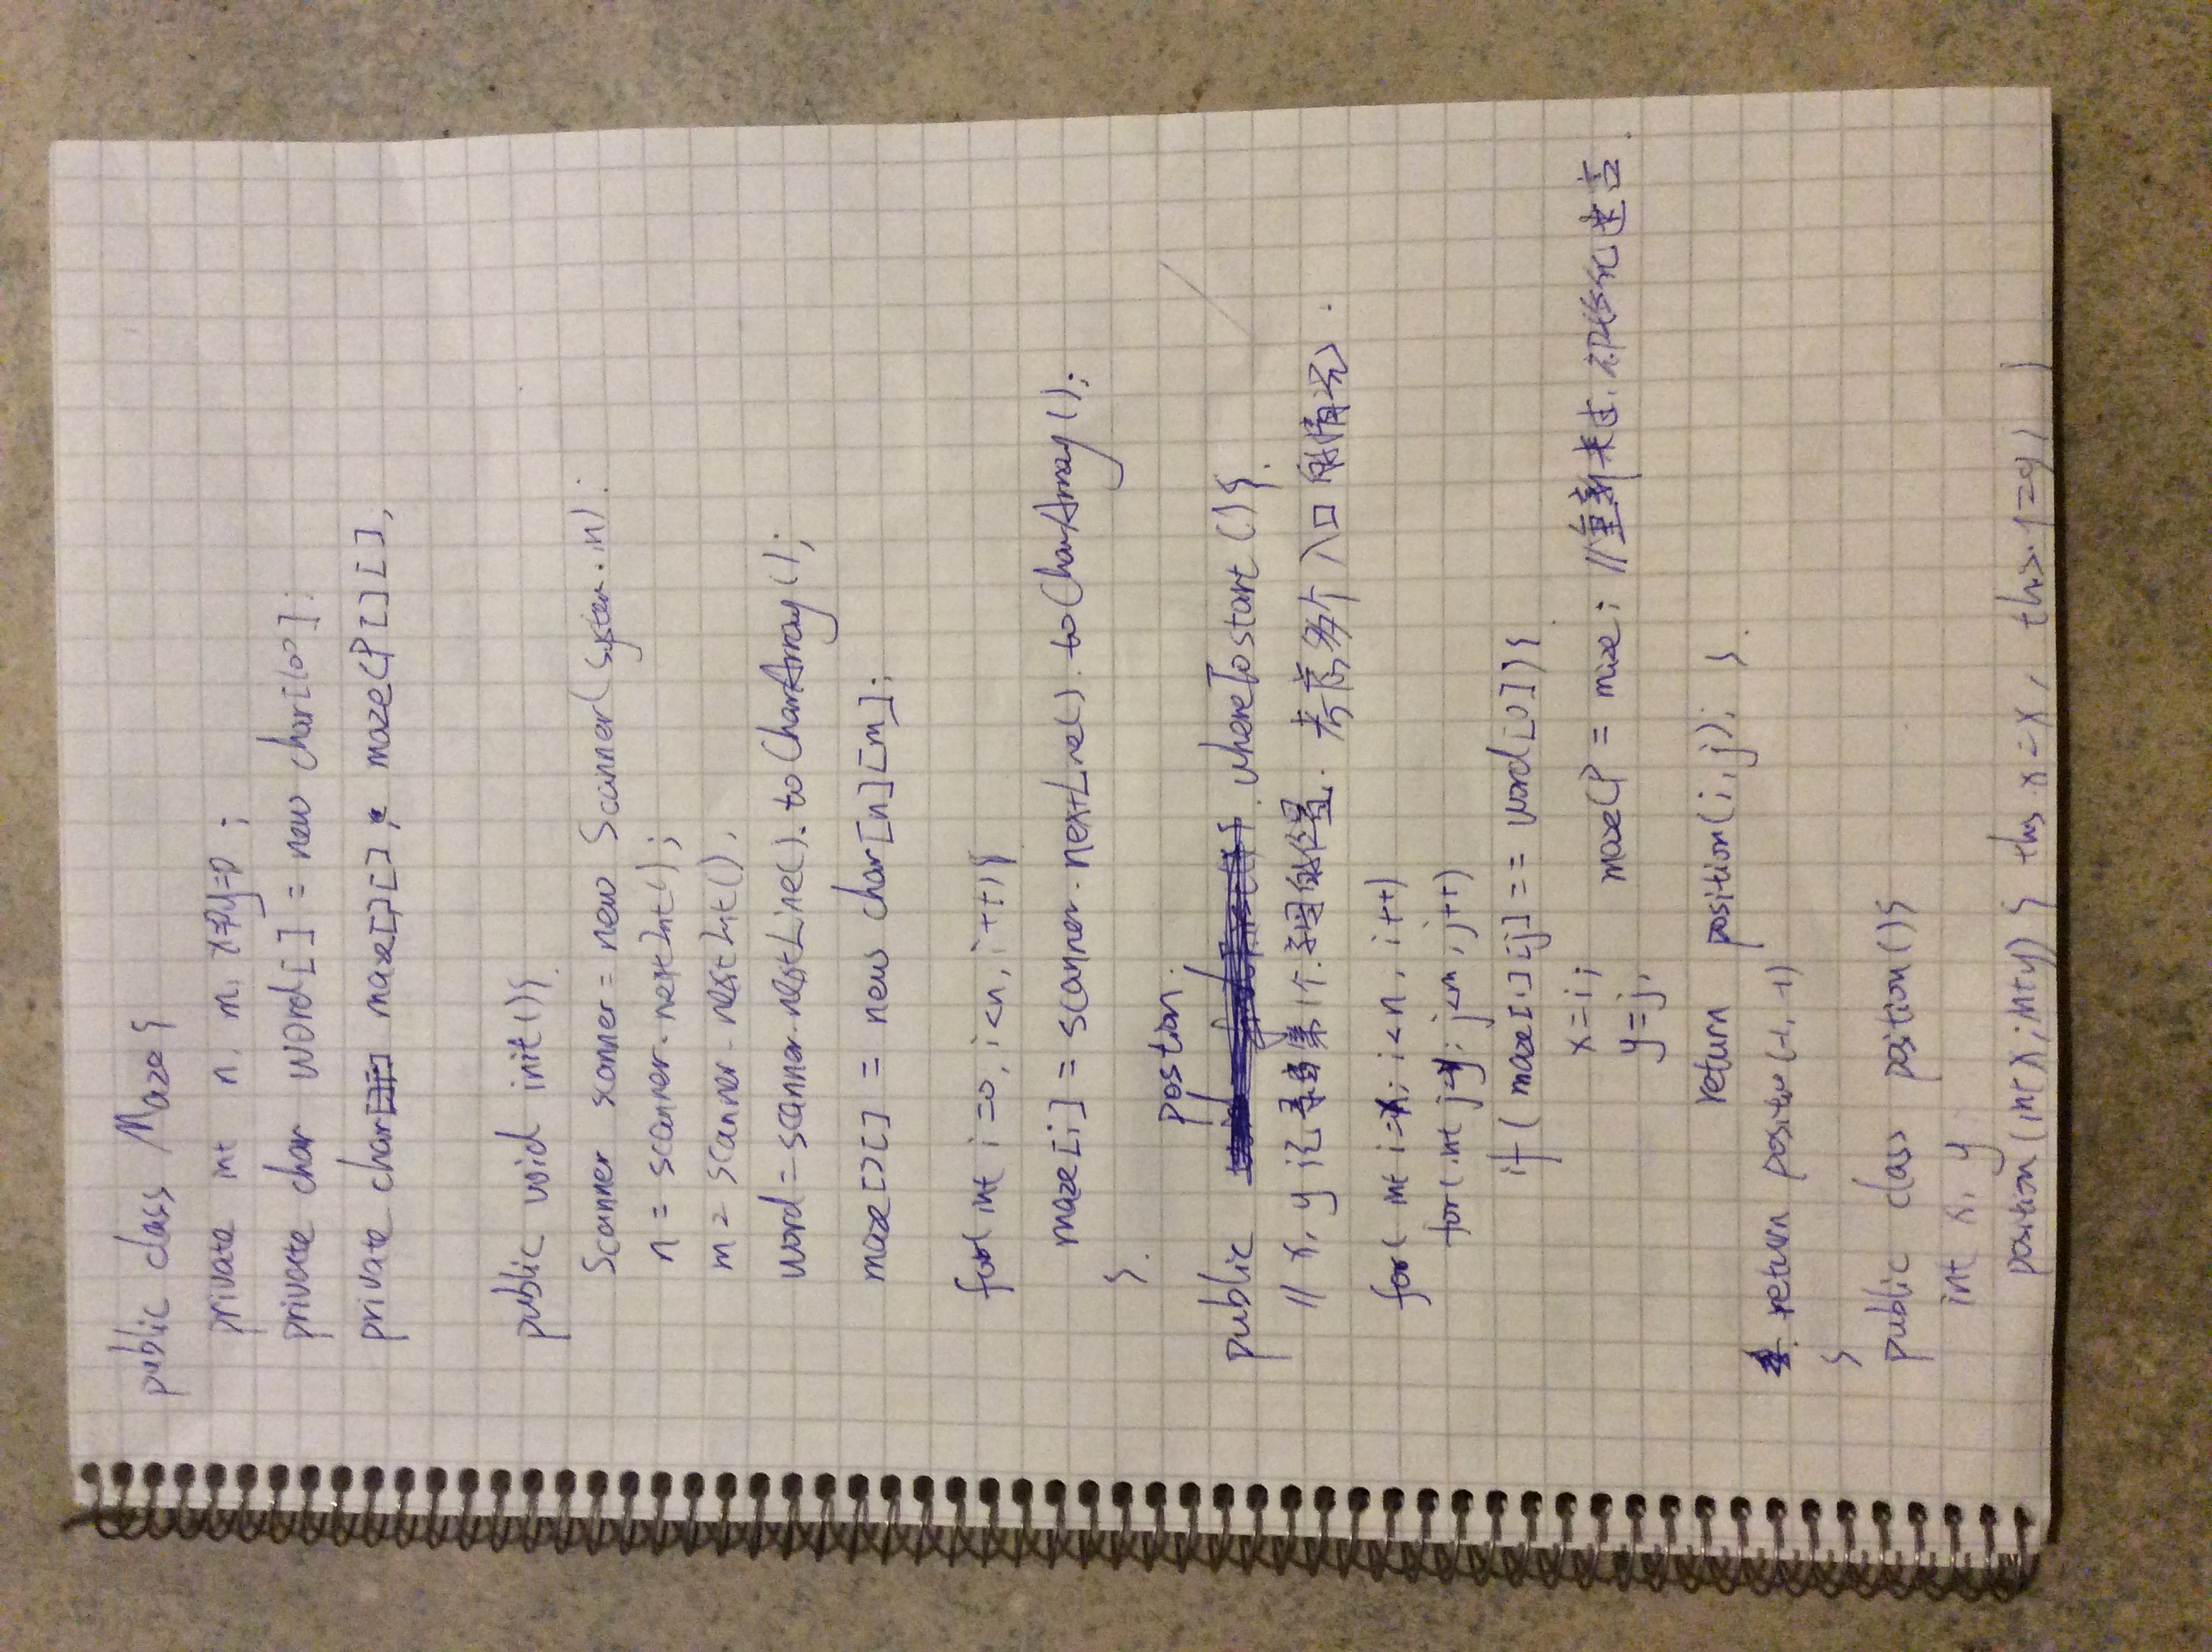 public class Maze {
private int n, m, x=0,y=0 ;
private char word[] = new char[100];
private char maze[][], mazeCP[][],
public void init(){
Scanner scanner = new Scanner(system.in);
n = scanner.nextInt();
m = scanner.nextInt(),
word = scanner.nextLine().toCharArray();
maze[][] = new char[n][m];
for(int i=0, i<n, i++){
maze[i] = scanner.nextLine().toCharArray();
}
postion
public whereTostart(){
// x, y 记录第1个字母的位置. 考虑多个入口的情况.
for( int i=x; i<n, i++)
for(int j=y; j<m, j++)
if( maze[i][j] == word[0]){
x=i;
mazeCP = maze; //重新来过,初始化迷宫.
y=j,
return position(i,j); }
return position(-1, -1)
}
public class position(){
int x, y
position(int x; int y) { this.x=x, this.y=y; }